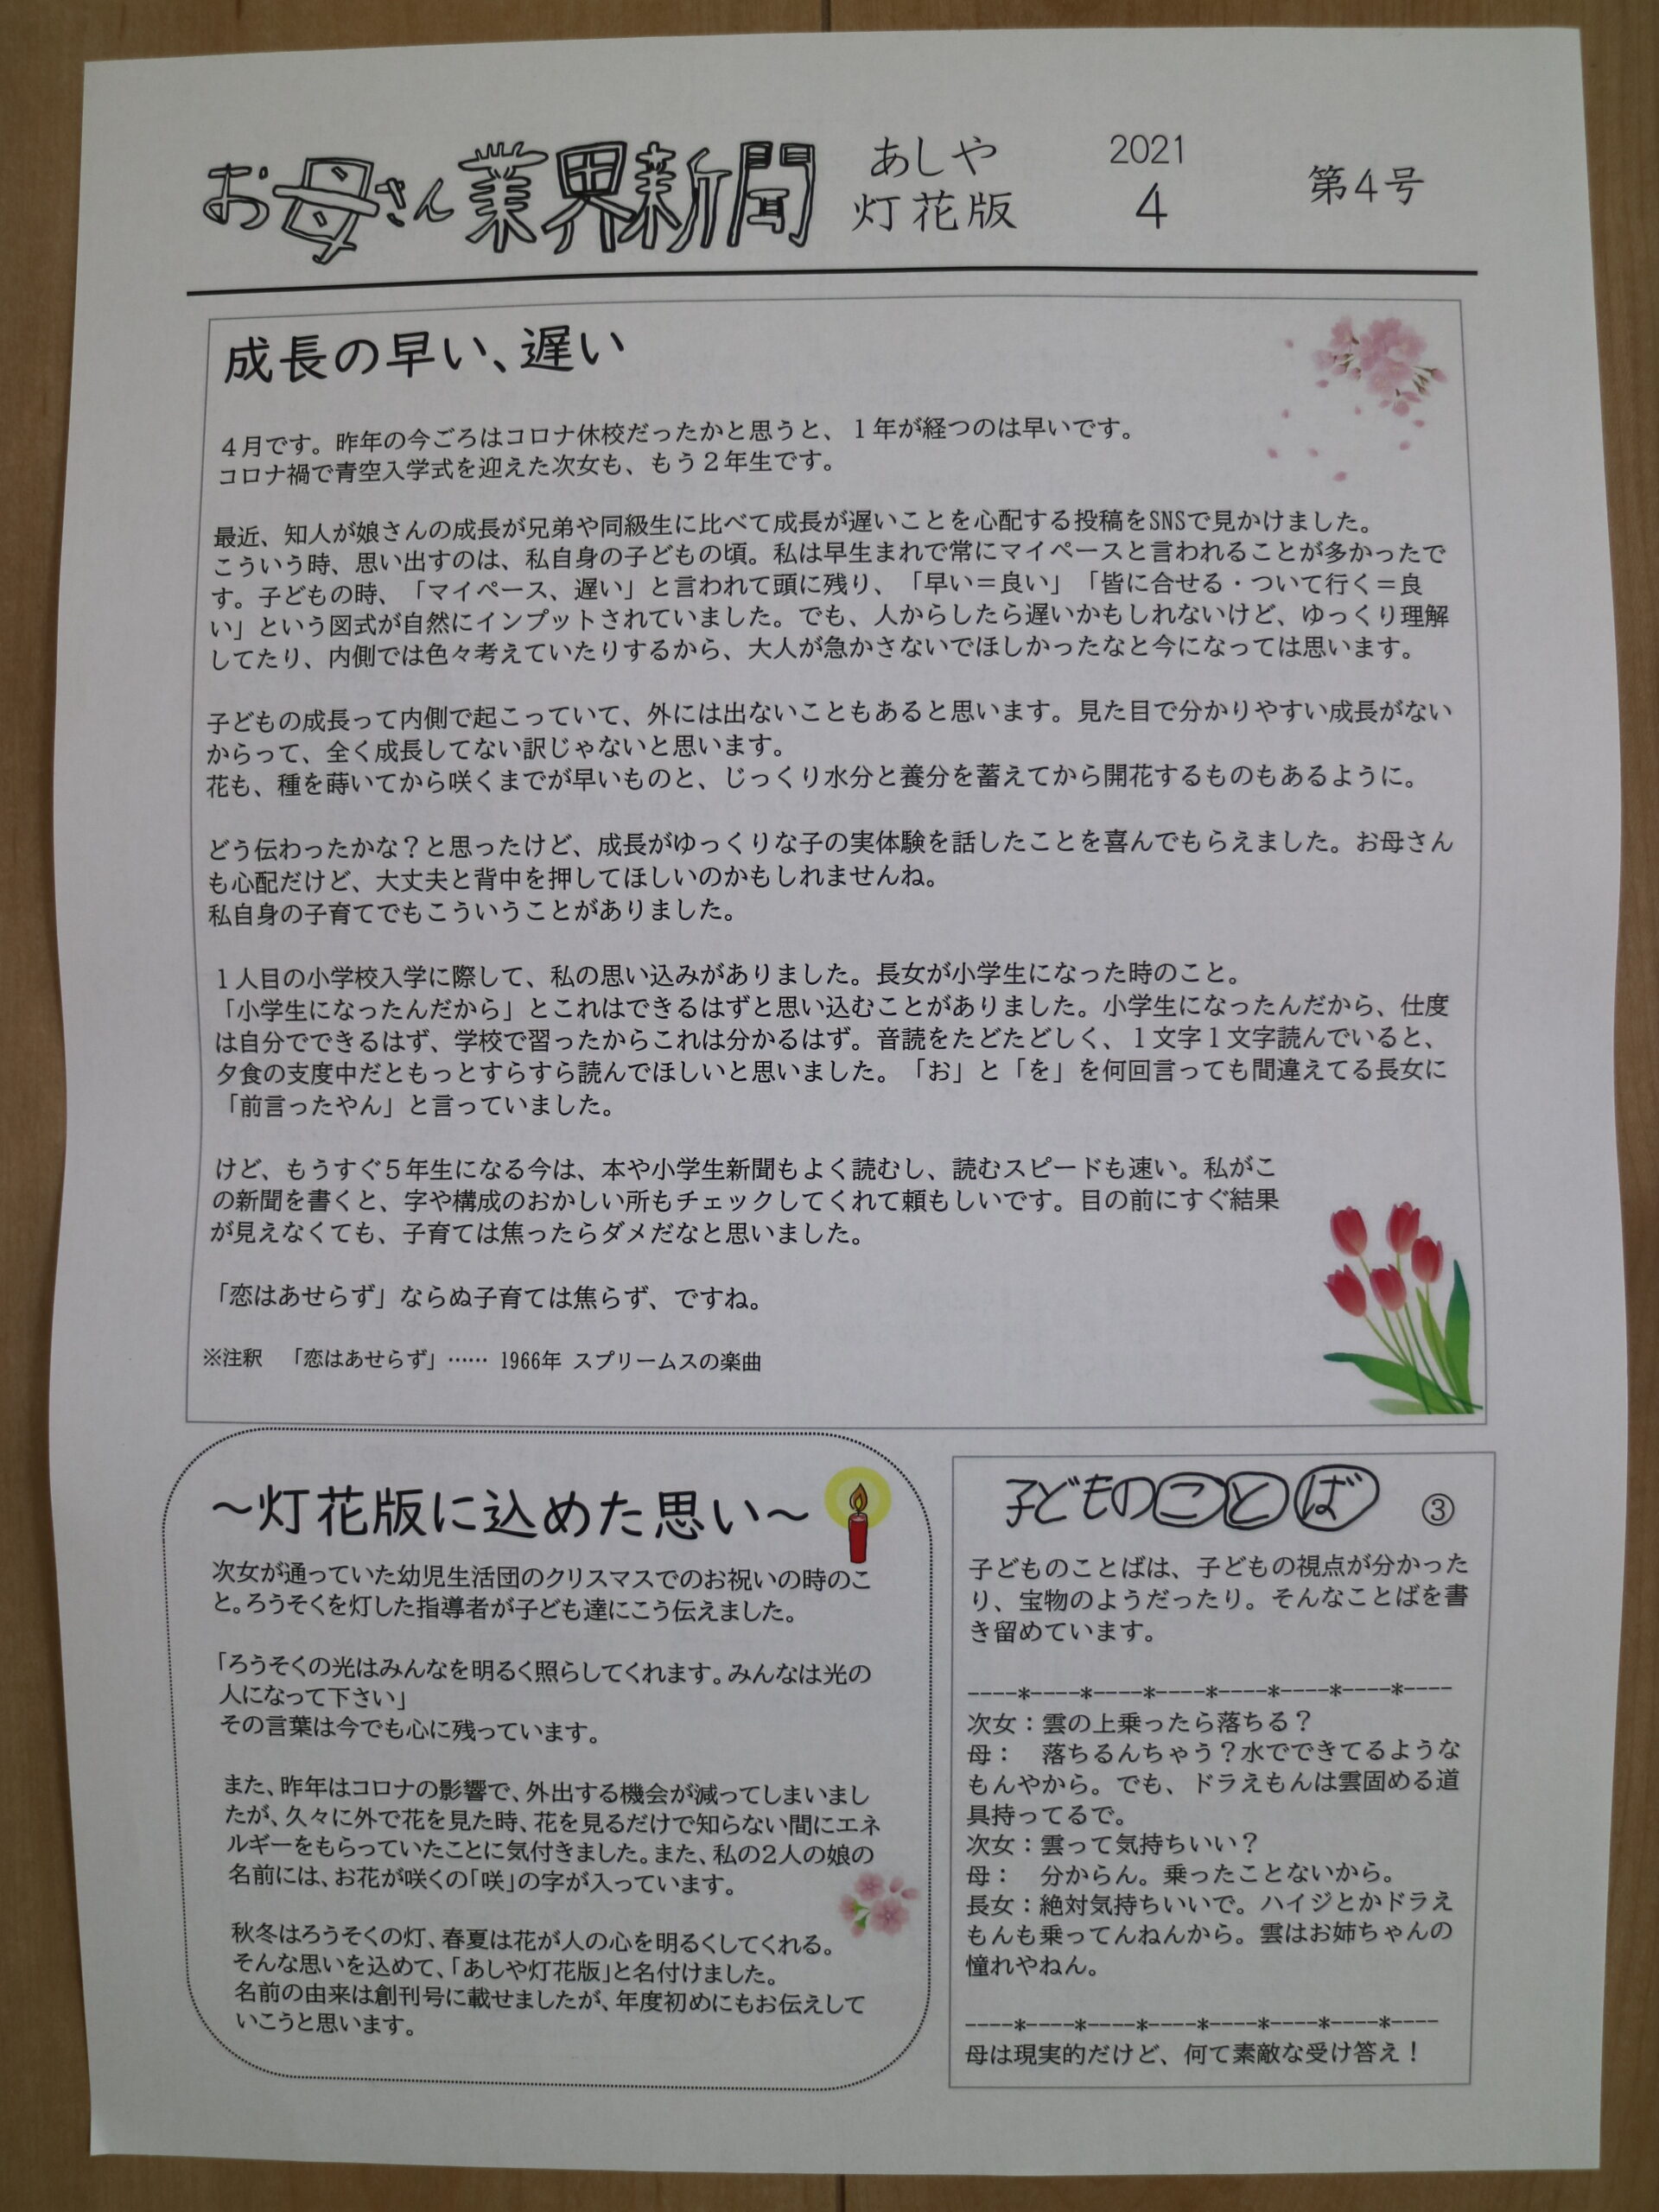 お母さん業界新聞
あしや
灯花版
2021
4
第4号
成長の早い、遅い
4月です。昨年の今ごろはコロナ休校だったかと思うと、1年が経つのは早いです。
コロナ禍で青空入学式を迎えた次女も、もう2年生です。
最近、知人が娘さんの成長が兄弟や同級生に比べて成長が遅いことを心配する投稿をSNSで見かけました。
こういう時、思い出すのは、私自身の子どもの頃。私は早生まれで常にマイペースと言われることが多かったで
す。子どもの時、「マイペース、遅い」と言われて頭に残り、「早い＝良い」「皆に合せる・ついて行く＝良
い」という図式が自然にインプットされていました。でも、人からしたら遅いかもしれないけど、ゆっくり理解
してたり、内側では色々考えていたりするから、大人が急かさないでほしかったなと今になっては思います。
子どもの成長って内側で起こっていて、外には出ないこともあると思います。見た目で分かりやすい成長がない
からって、全く成長してない訳じゃないと思います。
花も、種を蒔いてから咲くまでが早いものと、じっくり水分と養分を蓄えてから開花するものもあるように。
どう伝わったかな？と思ったけど、成長がゆっくりな子の実体験を話したことを喜んでもらえました。お母さん
も心配だけど、大丈夫と背中を押してほしいのかもしれませんね。
私自身の子育てでもこういうことがありました。
1人目の小学校入学に際して、私の思い込みがありました。長女が小学生になった時のこと。
「小学生になったんだから」とこれはできるはずと思い込むことがありました。小学生になったんだから、仕度
は自分でできるはず、学校で習ったからこれは分かるはず。音読をたどたどしく、1文字1文字読んでいると、
夕食の支度中だともっとすらすら読んでほしいと思いました。「お」と「を」を何回言っても間違えてる長女に
「前言ったやん」と言っていました。
けど、もうすぐ5年生になる今は、本や小学生新聞もよく読むし、読むスピードも速い。私がこ
の新聞を書くと、字や構成のおかしい所もチェックしてくれて頼もしいです。目の前にすぐ結果
が見えなくても、子育ては焦ったらダメだなと思いました。
「恋はあせらず」ならぬ子育ては焦らず、ですね。
※注釈 「恋はあせらず」…… 1966年 スプリームスの楽曲
～灯花版に込めた思い～
次女が通っていた幼児生活団のクリスマスでのお祝いの時のこ
と。ろうそくを灯した指導者が子ども達にこう伝えました。
「ろうそくの光はみんなを明るく照らしてくれます。みんなは光の
人になって下さい」
その言葉は今でも心に残っています。
また、昨年はコロナの影響で、外出する機会が減ってしまいまし
たが、久々に外で花を見た時、花を見るだけで知らない間にエネ
ルギーをもらっていたことに気付きました。また、私の2人の娘の
名前には、お花が咲くの「咲」の字が入っています。
秋冬はろうそくの灯、春夏は花が人の心を明るくしてくれる。
そんな思いを込めて、「あしや灯花版」と名付けました。
名前の由来は創刊号に載せましたが、年度初めにもお伝えして
いこうと思います。
子どものことば ③
子どものことばは、子どもの視点が分かった
り、宝物のようだったり。そんなことばを書
き留めています。
----*----*----*----*----*----*----*----
次女：雲の上乗ったら落ちる？
母： 落ちるんちゃう？水でできてるような
もんやから。でも、ドラえもんは雲固める道
具持ってるで。
次女：雲って気持ちいい？
母： 分からん。乗ったことないから。
長女：絶対気持ちいいで。ハイジとかドラえ
もんも乗ってんねんから。雲はお姉ちゃんの
憧れやねん。
----*----*----*----*----*----*----*----
母は現実的だけど、何て素敵な受け答え！